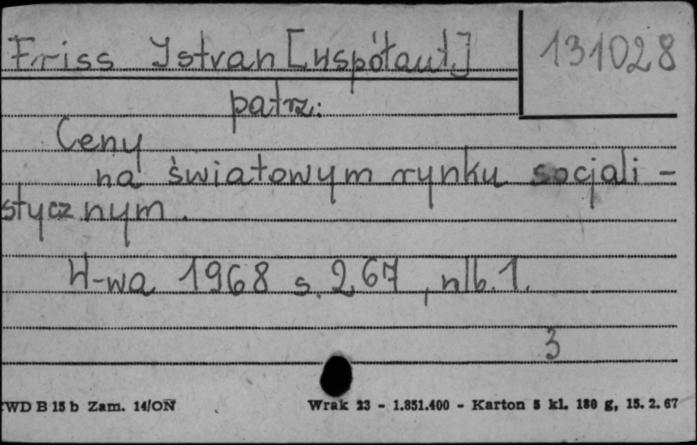 Friss Istvan [współaut]
131028
patrz:
Ceny
na światowym rynku socjali-
stycznym.
W-wa 1968 s. 267, nlb. 1.
3
WD B 15 b Zam. 14/ON
Wrak 23 - 1.851.400 - Karton 5 kl. 180 g, 15. 2. 67